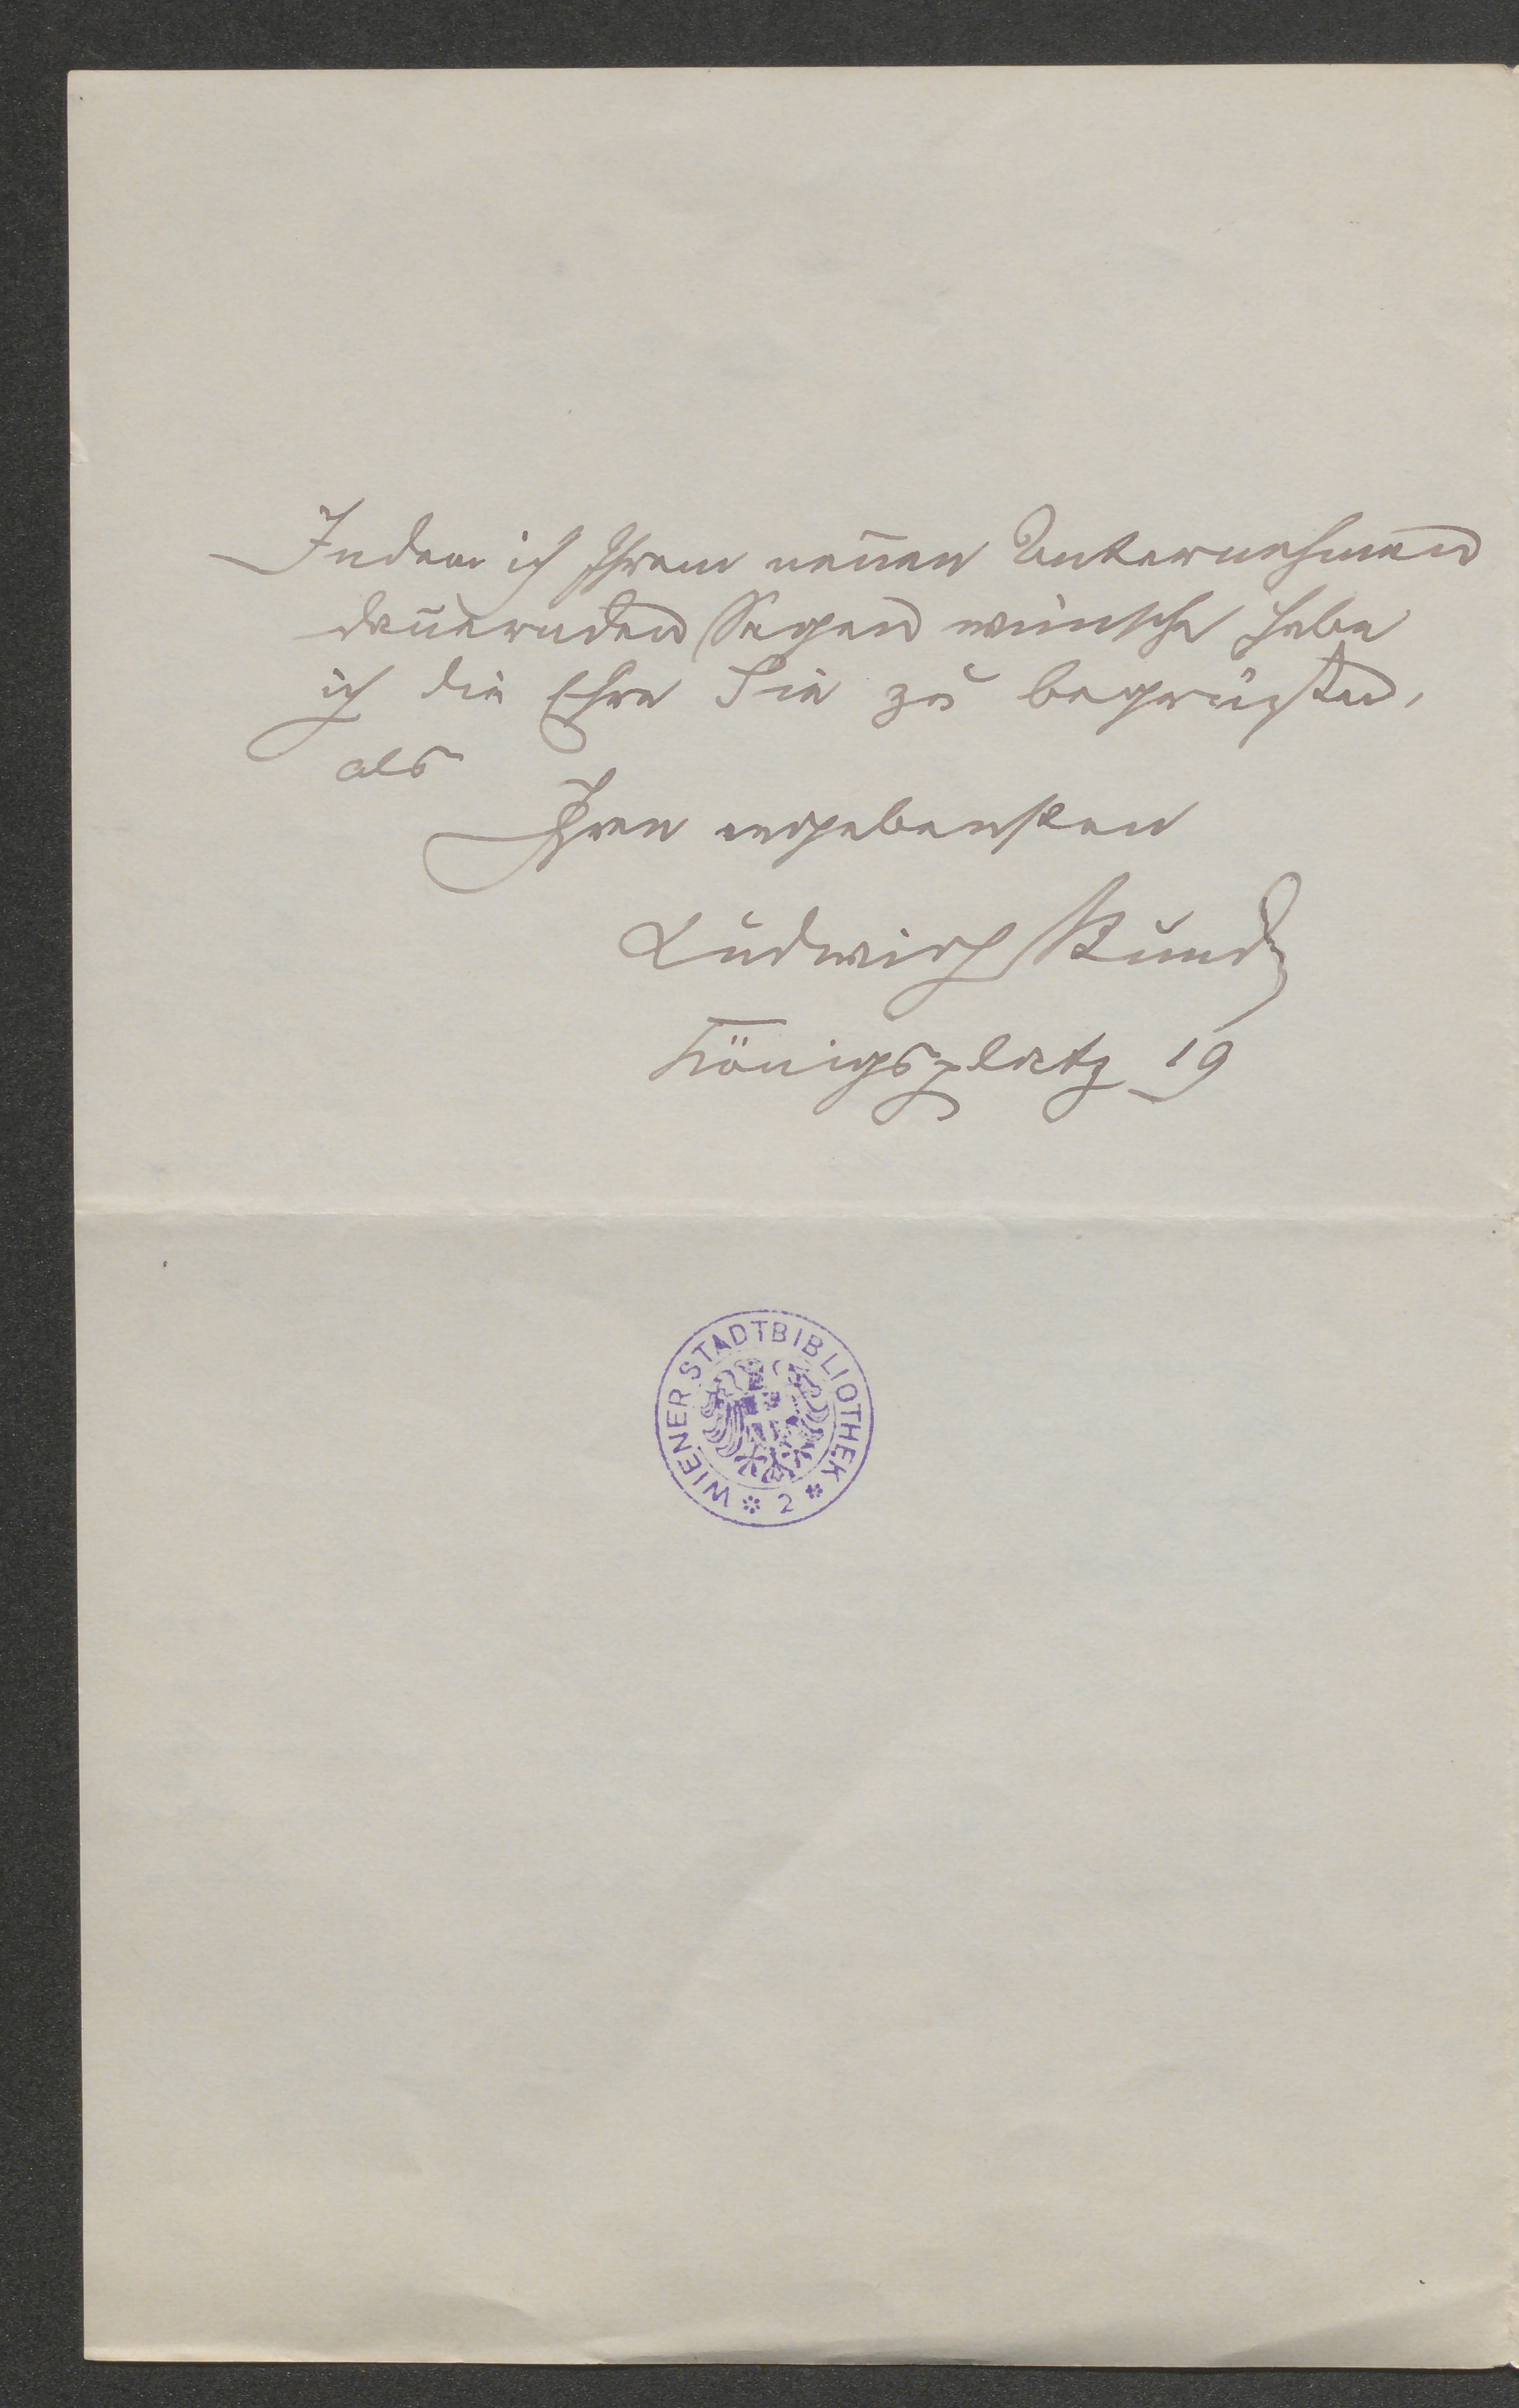 Indem ich Ihrem neuen Unternehmen
dauernden Segen wünsche habe
ich die Ehre Sie zu begrüßen,
als
Ihren ergebensten
Ludwig
Königsplatz 19
WIENER STADTBIBLIOTHEK * 2 *